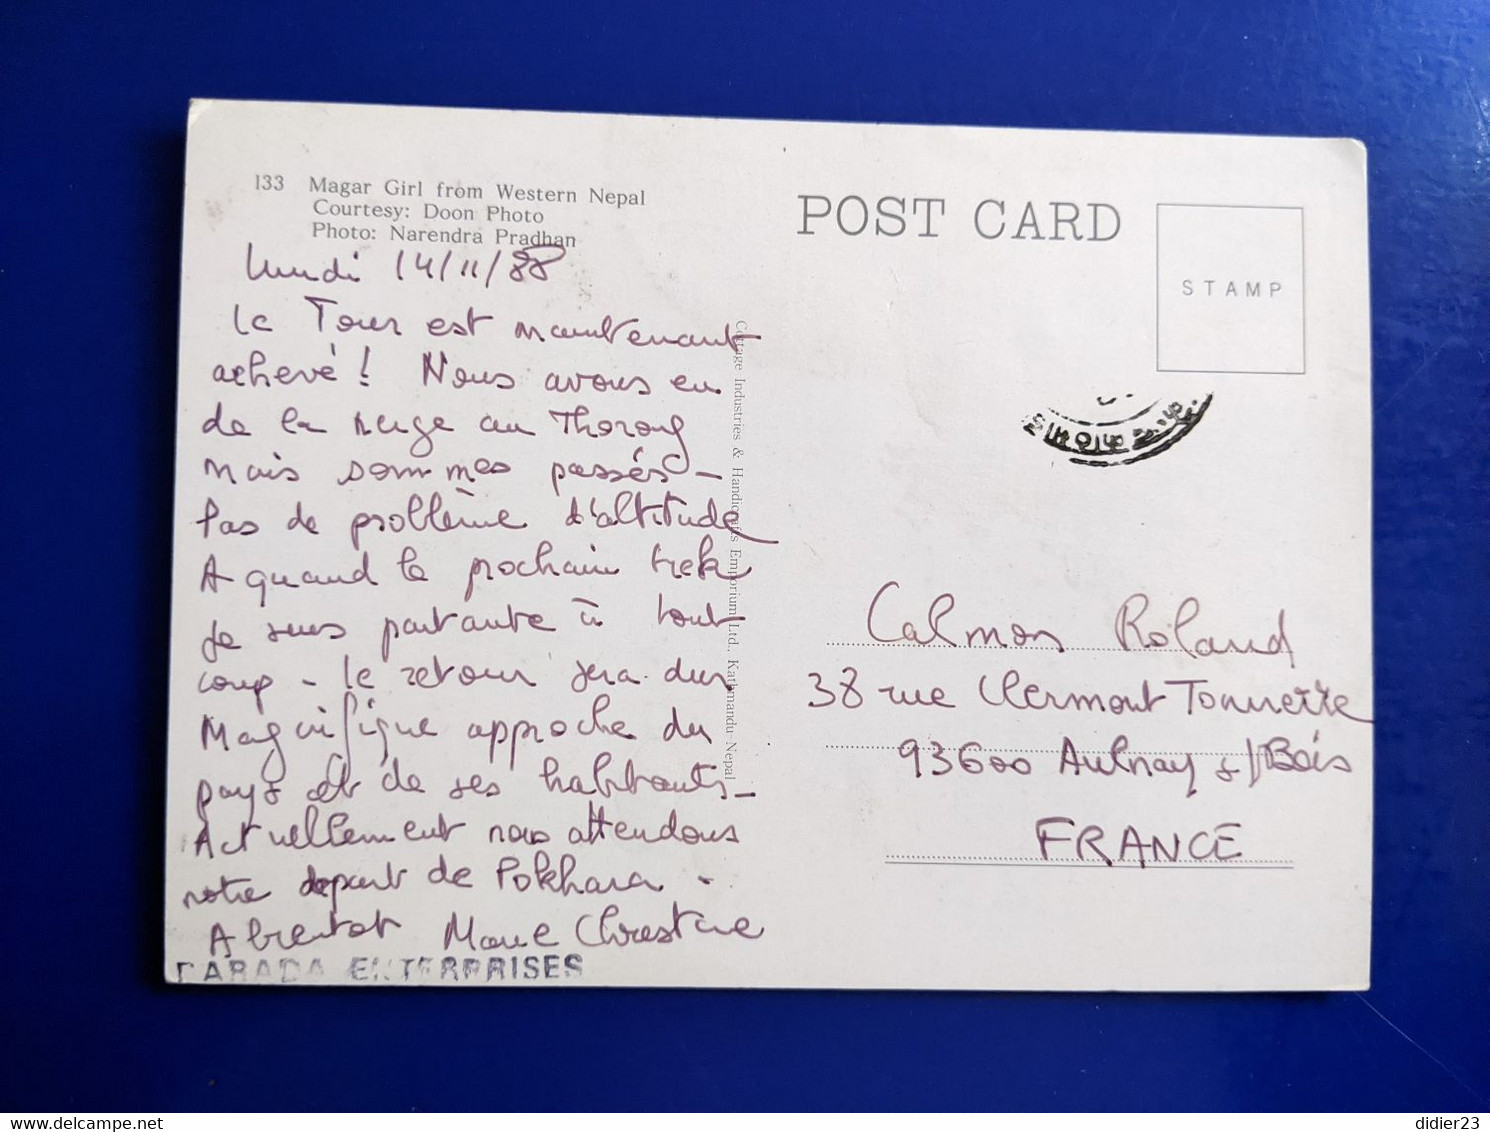 133 Magar Girl from Western Nepal
Courtesy: Doon Photo
Photo: Narendra Pradhan
lundi 14/11/88
le Tour est maintenant
achevé ! Nous avons eu
de la neige au Thorong
mais sommes passés -
Pas de problème d'altitude
A quand le prochain trek
Je suis partante à tout
coup - le retour sera dur.
Magnifique approche du
pays et de ses habitants -
Actuellement nous attendons
notre départ de Pokhara -
A bientot Marie Christine
DARADA ENTERPRISES
Cottage Industries & Handicrafts Emporium Ltd., Kathmandu-Nepal
POST CARD
STAMP
Calmon Roland
38 rue Clermont Tonnerre
93600 Aulnay s/Bois
FRANCE
didier23